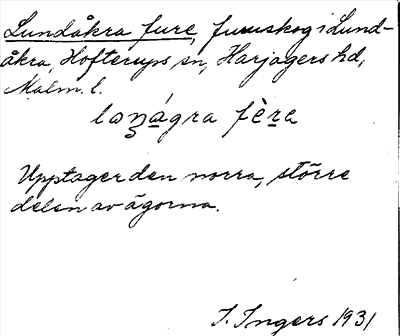 Lundåkra fure, furuskog i Lund-
åkra, Hofterups sn, Harjagers hd,
Malm. l.
loṇágra fèra
Upptager den norra, större
delen av ägorna.
I. Ingers 1931